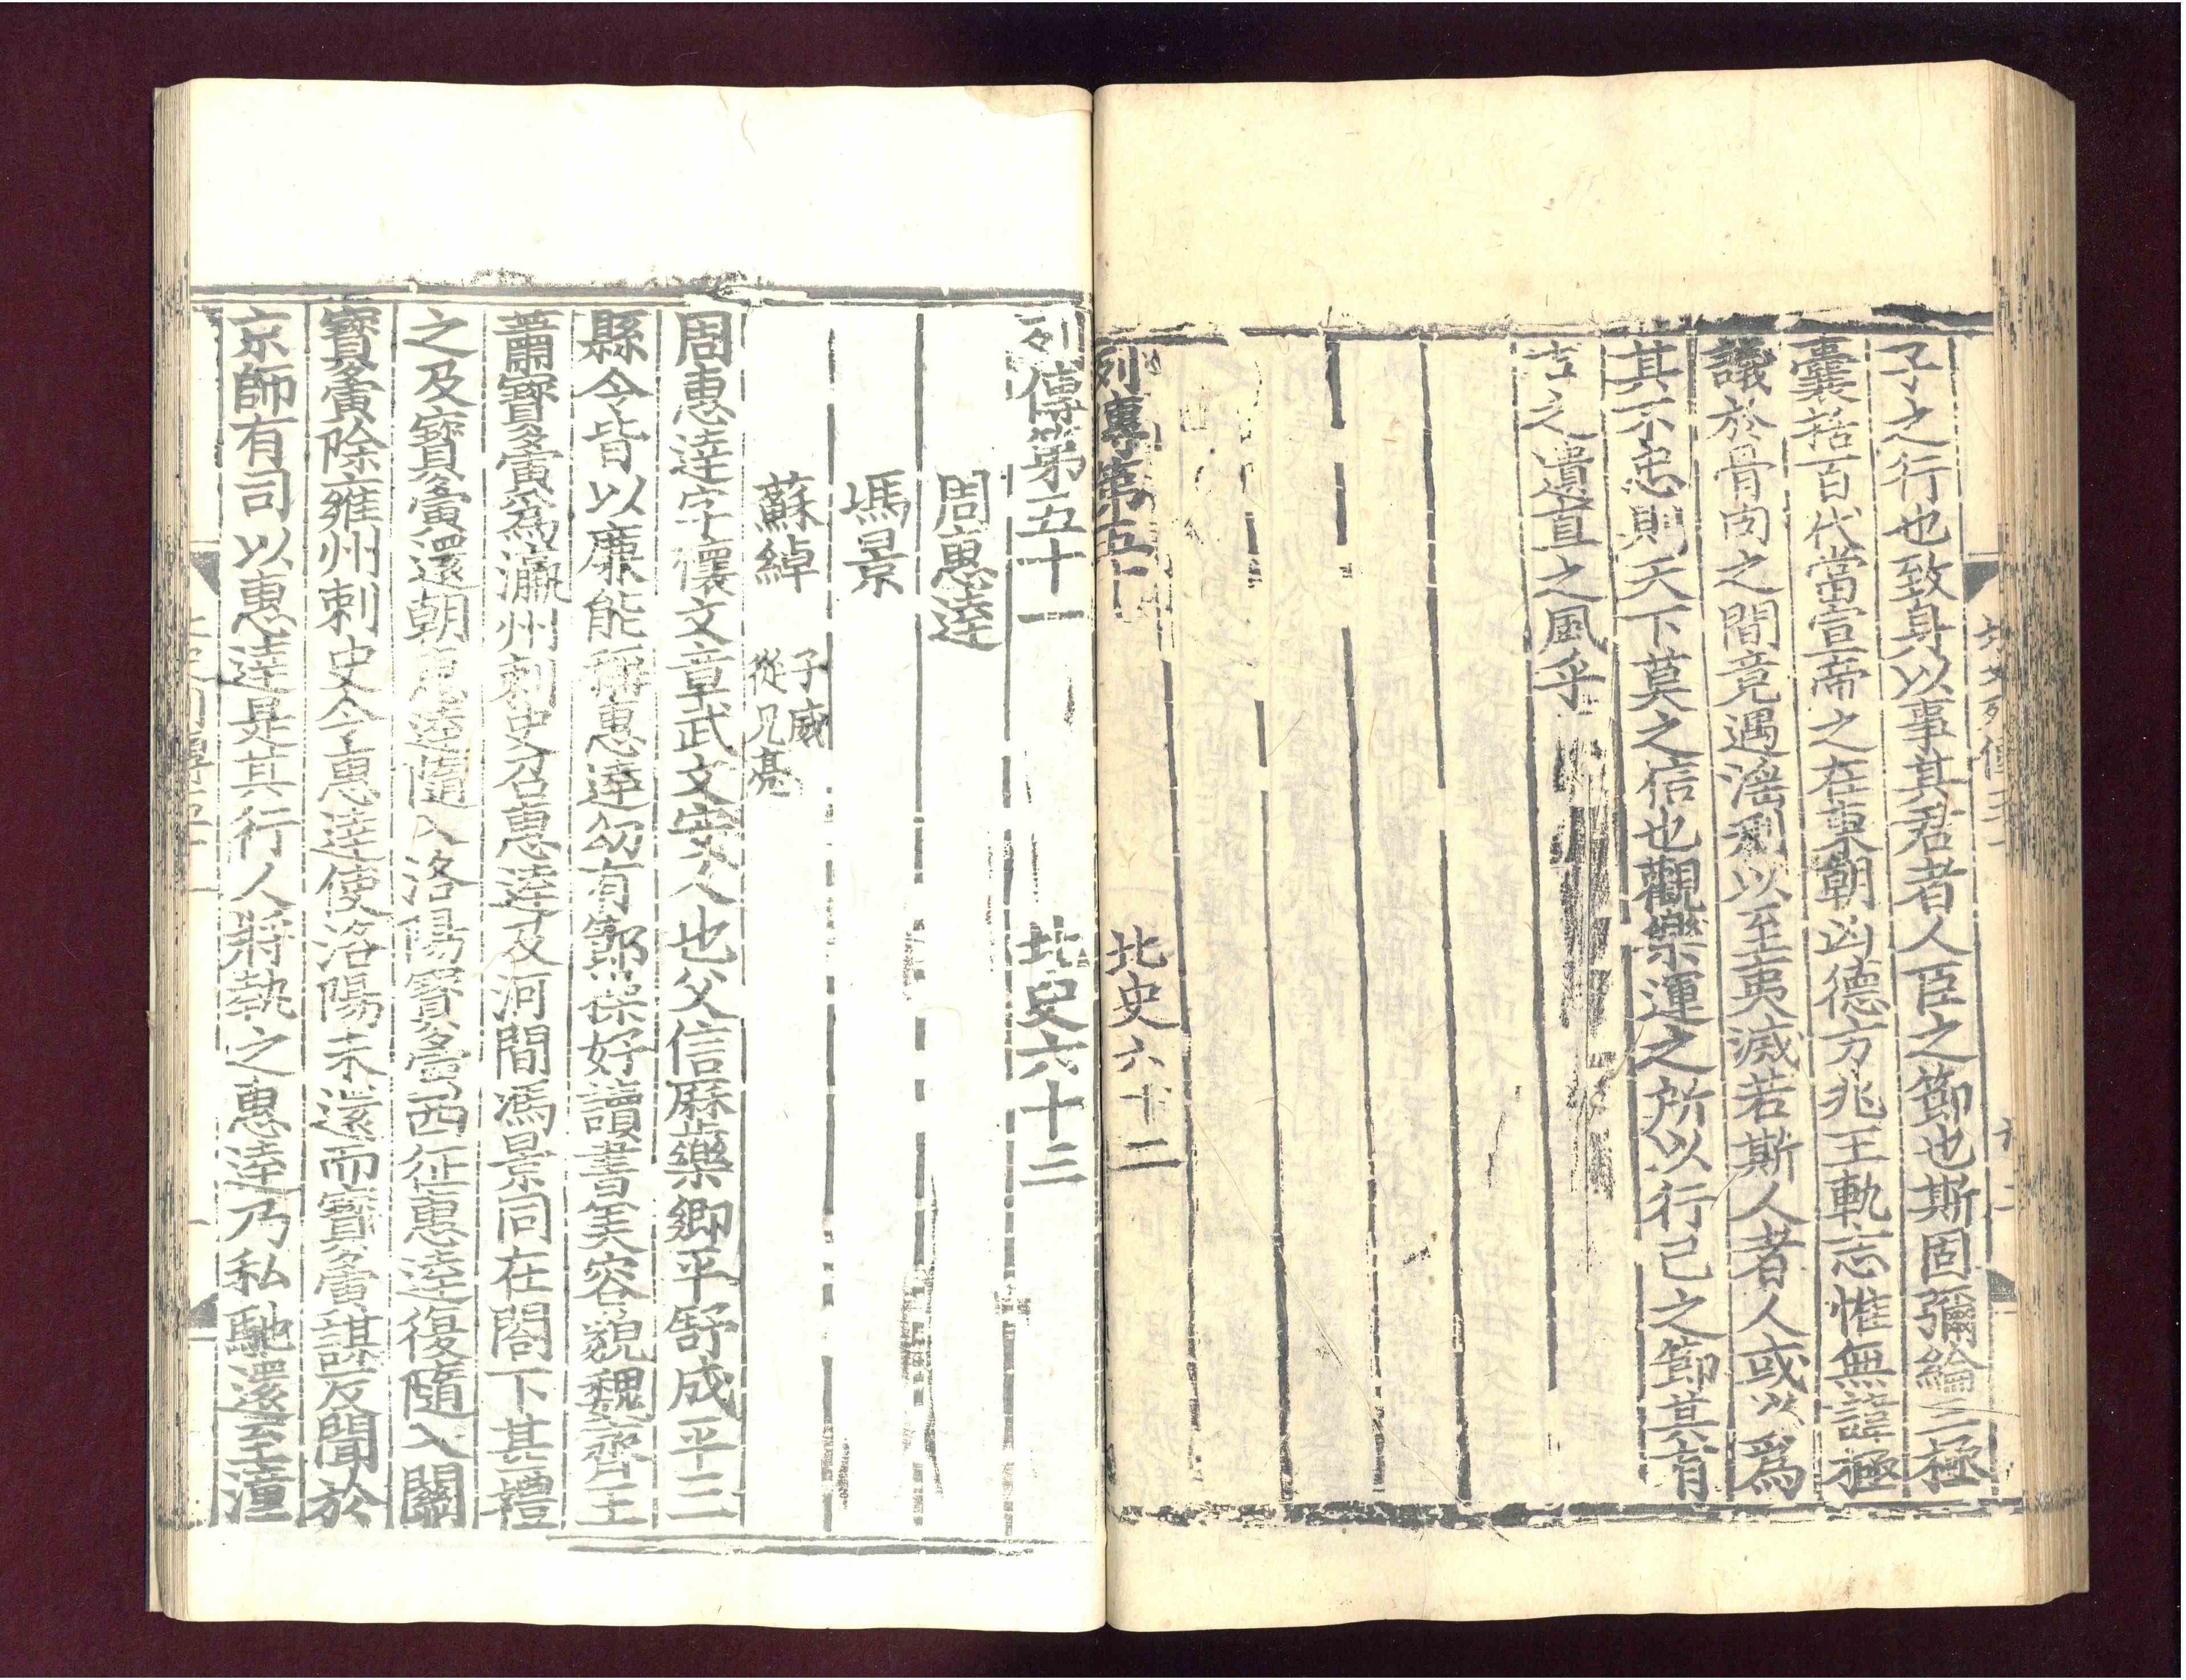 子之行也致身以事其君者人臣之節也斯固彌綸三極
囊括百代當宣帝之在東朝凶德方兆王軌志惟無諱極
議於骨肉之間竟遇滛刑以至夷滅若斯人者人或以爲
其不忠則天下莫之信也觀樂運之所以行己之節其有
古之遺直之風乎
列傳第五十 北史六十二
列傳第五十一 北史六十三
周惠逹
馮景
蘇綽 子威 從兄亮
周惠逹字懷文章武文安人也父信歴樂鄉平舒成平三
縣令皆以廉能稱惠逹幼有節操好讀書美容貌魏齊王
蕭寶夤爲瀛州刺史召惠逹及河間馮景同在閤下甚禮
之及寶夤還朝惠逹隨入洛陽寶夤西征惠逹復隨入關
寶夤除雍州刺史令惠逹使洛陽未還而寶夤謀反聞於
京師有司以惠逹是其行人將執之惠逹乃私馳還至潼